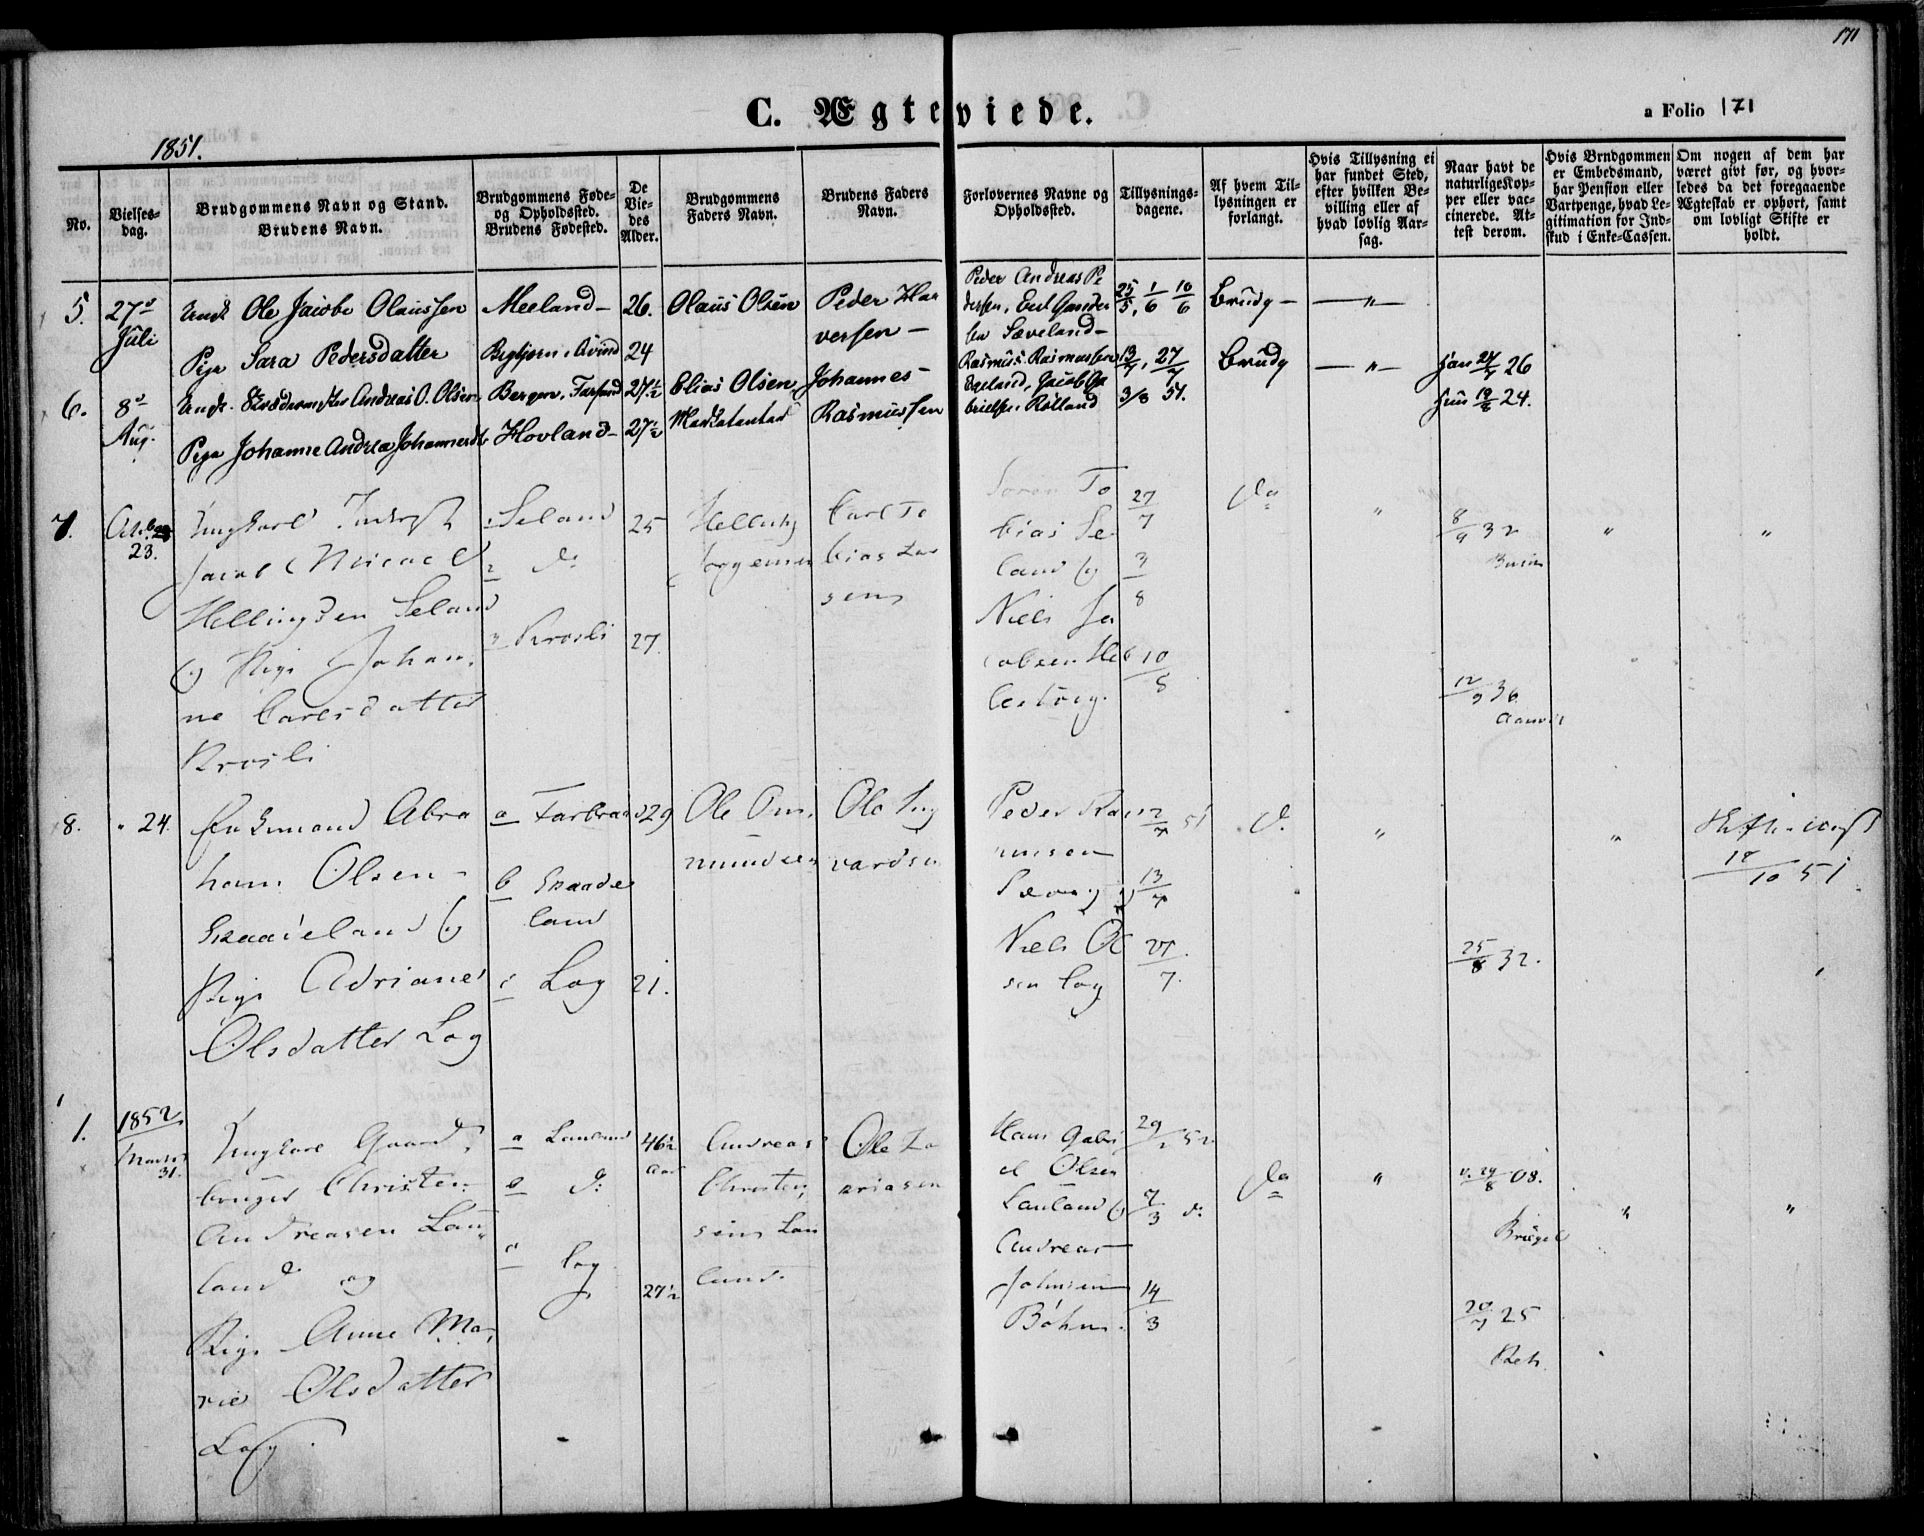 171
C. Ægteviede.
a Folio 171
1851.
No.
Vielses-
dag.
Brudgommens Navn og Stand.
Brudens Navn.
Brudgommens Føde-
og Opholdssted.
Brudens Fødested.
De
Vie-
des
Alder.
Brudgommens
Faders Navn.
Brudens Faders
Navn.
Forlovernes Navne og
Opholdssted.
Tillysnings-
dagene.
Af hvem Til-
lysningen er
forlangt.
Hvis Tillysning ei
har fundet Sted,
efter hvilken Be-
villing eller af
hvad lovlig Aar-
sag.
Naar havt de
naturlige Kop-
per eller vac-
cinerede. At-
test derom.
Hvis Brudgommen
er Embedsmand,
har Pension eller
Vartpenge, hvad Le-
gitimation for Ind-
skud i Enke-Cassen.
Om nogen af dem har
været givt før, og hvor-
ledes da det foregaaende
Ægteskab er ophørt, samt
om lovligt Skifte er
holdt.
5.
27de
Juli
Ungk. Ole Jacob Olaussen
Pige Sara Pedersdatter
Meeland
26.
24
Olaus Olsen
Peder Hal
versen
Peder Andreas Pe
dersen
Sæveland
25/5, 1/6 10/6
Brudg
"
6.
8de
Aug.
Andreas O. Olsen
Pige Johanne Andrea Johannesd.
Bergen, Farsund
Hovland
27 1/2
27 1/2
Elias Olsen
Johannes
Rasmussen
Rasmus Rasmussen
Eeland, Jacob Ga
brielsen Rølland
13/7, 27/7
3/8 51.
Brudg
"
han 24/7 26
hun 18/8 24.
7.
Octob.
23.
Ungkarl
Jacob Michael
Hellingsen Seland
og Pige Johan-
ne Carlsdatter
Krosli
Seland
do
Krosli
25
27.
Helling
Jørgensen
Carl To
bias La
sens
Søren To
bias Se
land og
Niels Ja
cobsen
27/7
3/8
10/8
do
"
8/9 32
12/9 36
"
"
8.
" 24.
Enkemand Abra
ham Olsen
Skaadeland og
Pige Adriane
Olsdatter Log
a
b Skaade
land
c Log
29
21.
Ole Om
mundsen
Ole Ing
vardsen
Peder Ras
mussen
og
Niels Ol
sen Log
51
13/7
27/7.
do
"
25/8 32.
"
18/10 51
1.
1852
Marts
31.
Ungkarl Gaard
bruger Christen
Andreasen Lau
land og
Pige Anne Ma-
rie Olsdatter
Log.
a Lauland
do
Log
46 1/2
Aar
27 1/2
Andreas
Christen
sens Lau
land.
Ole La
Hans Gabri
el Olsen
Lauland og
Andreas
Johnsen
Bøhn.
29/2 52
7/3 do
14/3
do
"
v. 29/8 08.
20/7 25
"
"